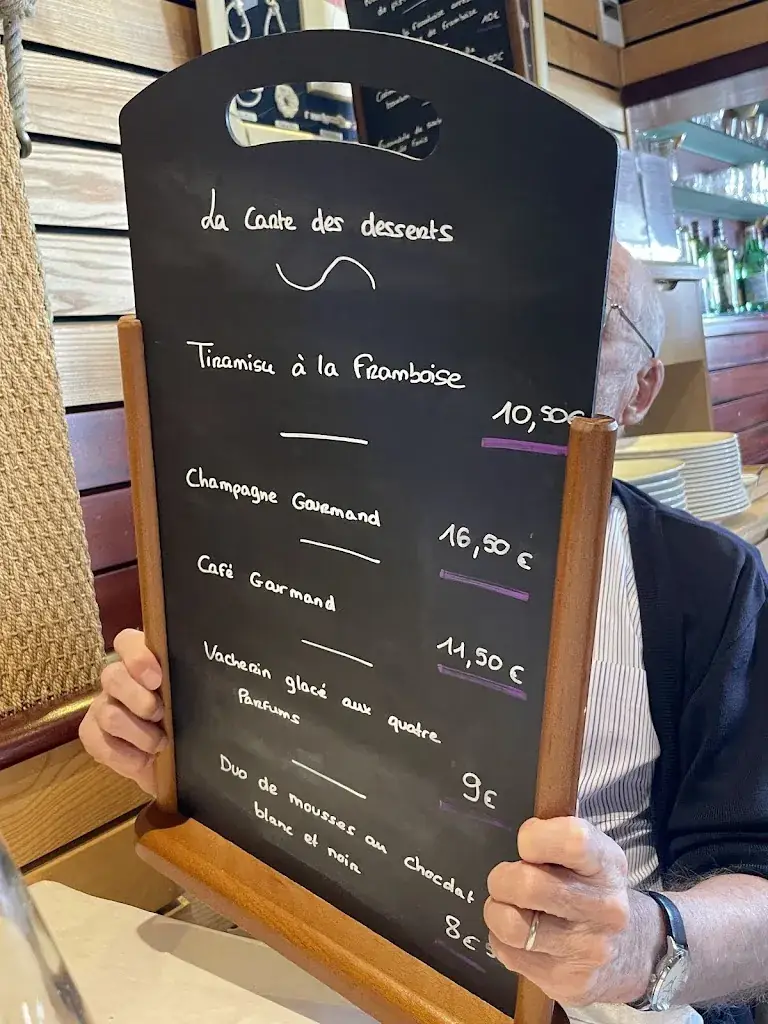 La Carte des desserts
Tiramisu à la Framboise
10,50€
Champagne Gourmand
16,50 €
Café Gourmand
11,50 €
Vacherin glacé aux quatre
Parfums
9€
Duo de mousses au chocolat
blanc et noir
8€
la framboise
10€
de framboise